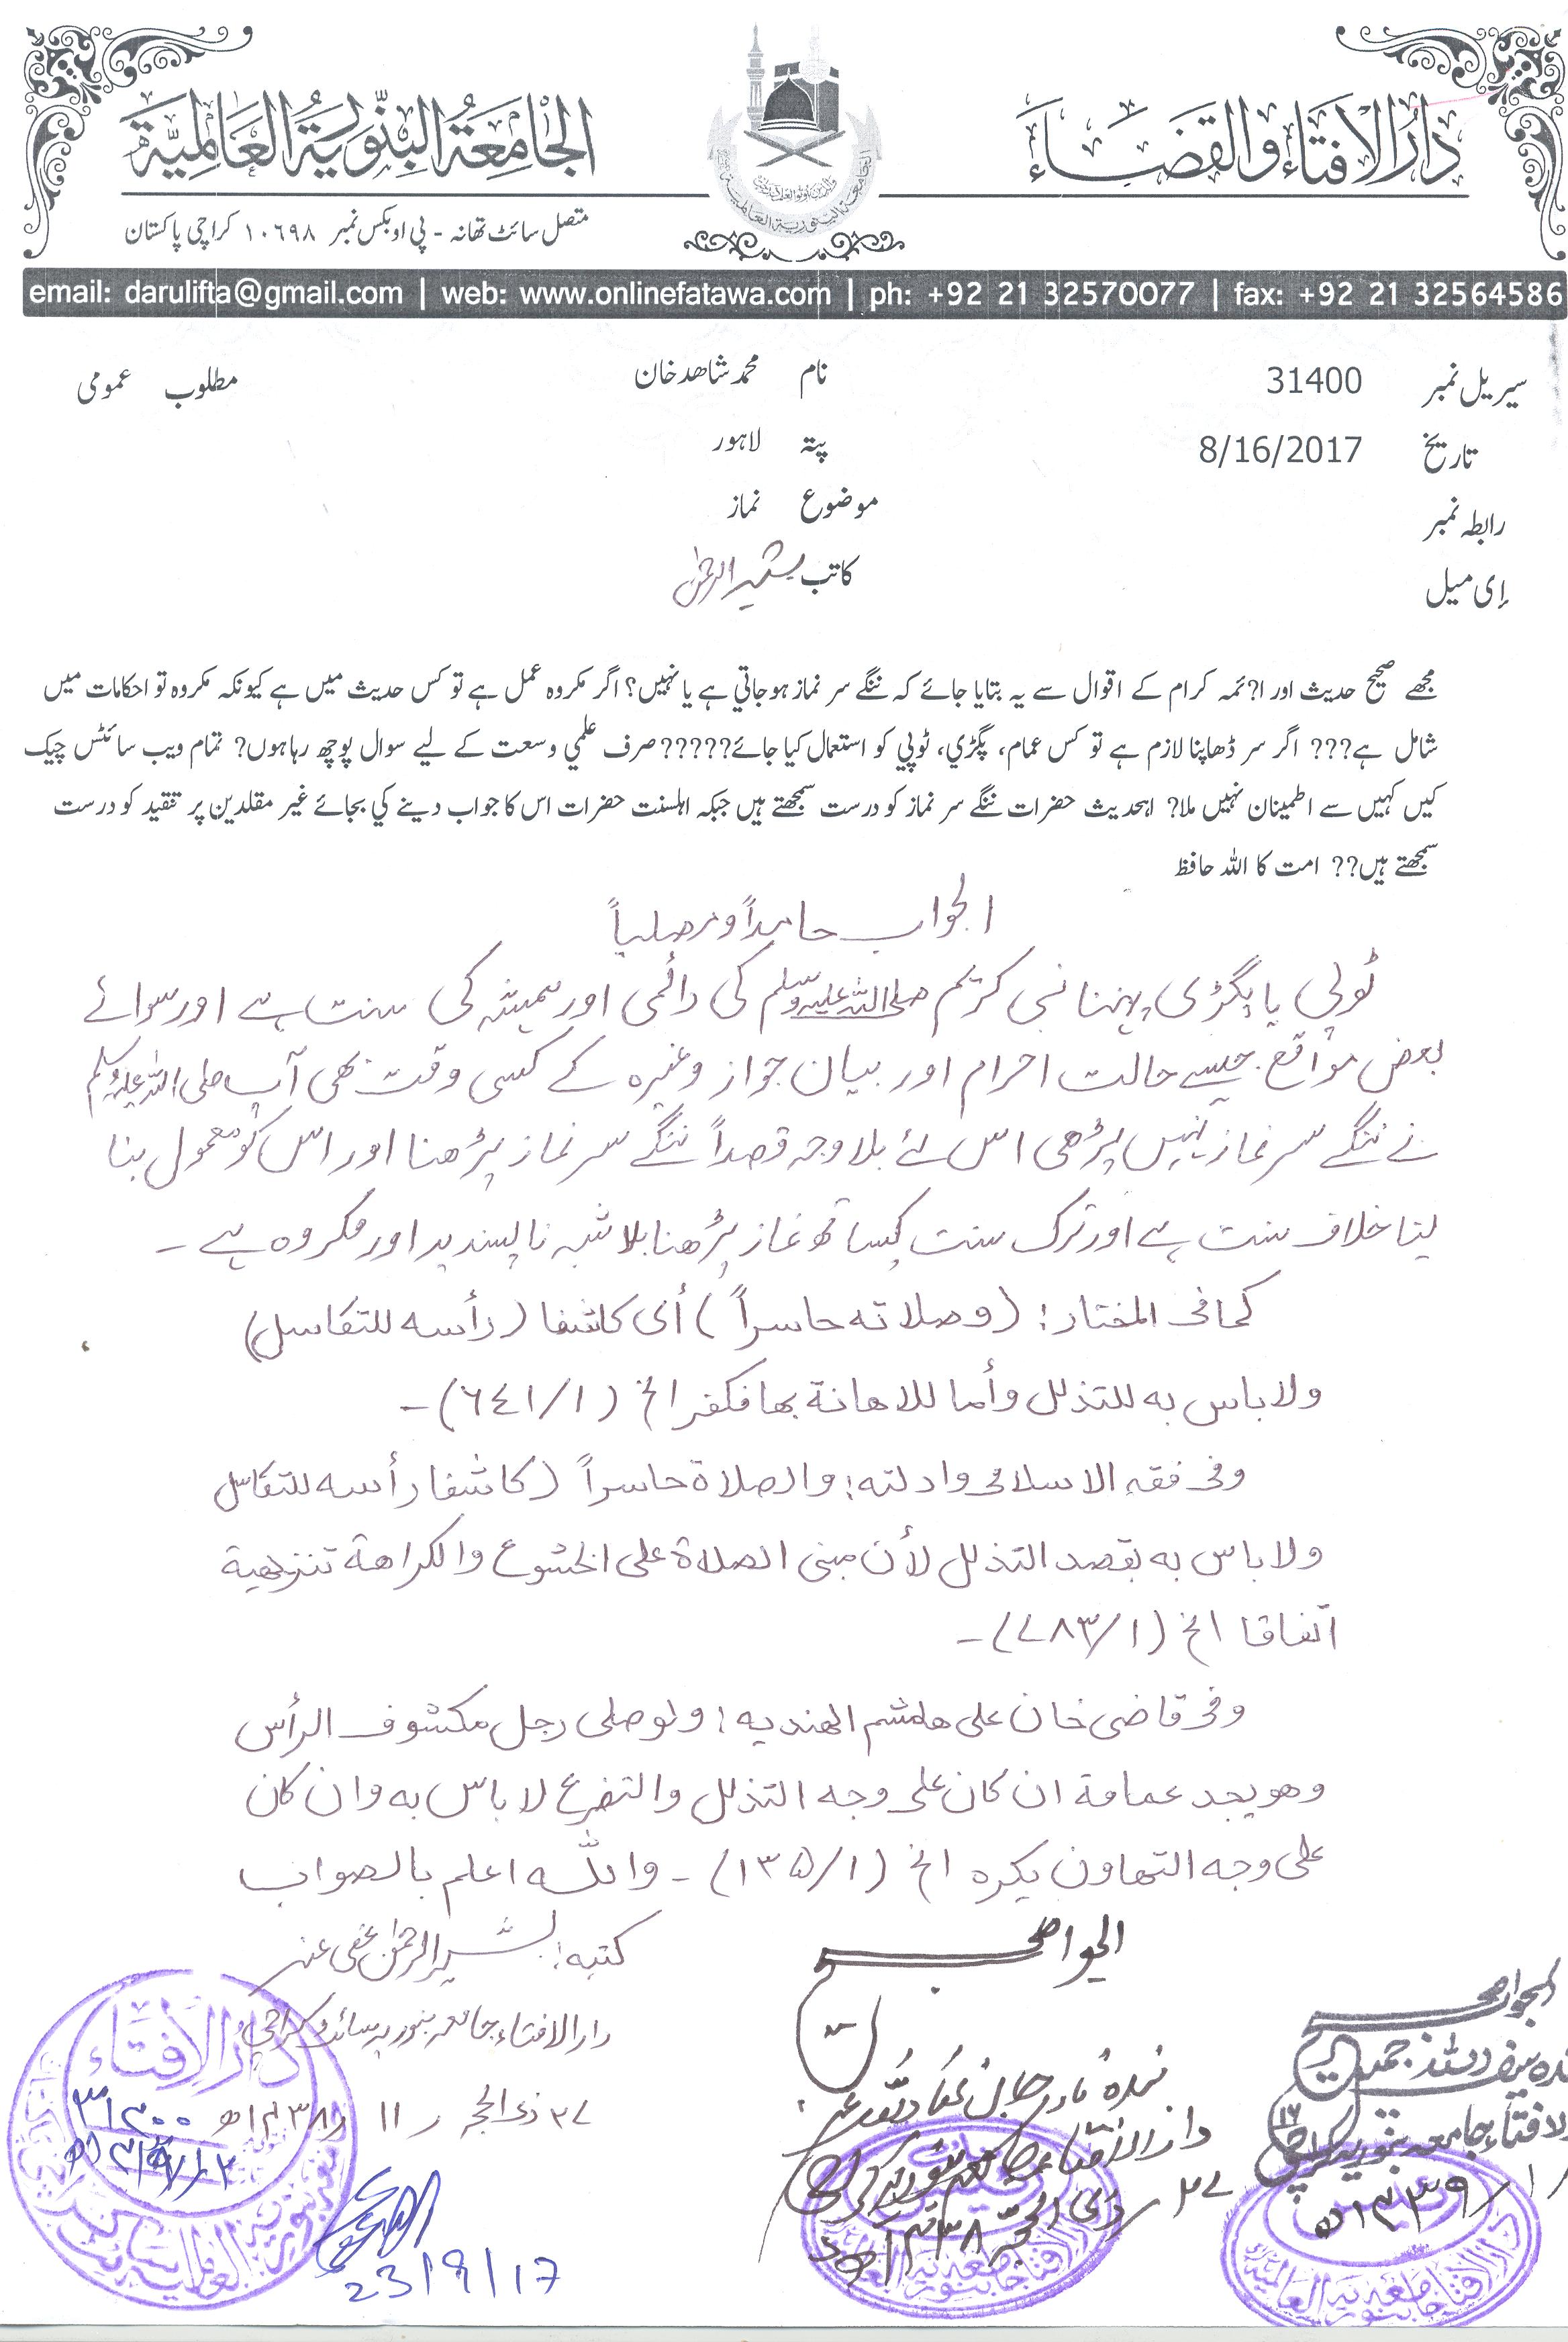 دارُالافتاء والقضاء
الجامعۃ البنوریۃ العالمیۃ
متصل سائٹ تھانہ - پی او بکس نمبر ۱۰۶۹۸ کراچی پاکستان
email: darulifta@gmail.com | web: www.onlinefatawa.com | ph: +92 21 32570077 | fax: +92 21 32564586
سیریل نمبر 31400 نام محمد شاھد خان مطلوب عمومی
تاریخ 8/16/2017 پتہ لاہور
رابطہ نمبر موضوع نماز
اِی میل کاتب بشیر الرحمٰن
مجھے صحیح حدیث اور ا?ئمہ کرام کے اقوال سے یہ بتایا جائے کہ ننگے سر نماز ہوجاتي ہے یا نہیں؟ اگر مکروہ عمل ہے تو کس حدیث میں ہے کیونکہ مکروہ تو احکامات میں
شامل ہے??? اگر سر ڈھاپنا لازم ہے تو کس عمام، پگڑي، ٹوپي کو استعمال کیا جائے????? صرف علمي وسعت کے لیے سوال پوچھ رہا ہوں? تمام ویب سائٹس چیک
کیں کہیں سے اطمینان نہیں ملا? اہحدیث حضرات ننگے سر نماز کو درست سمجھتے ہیں جبکہ اہلسنت حضرات اس کا جواب دینے کي بجائے غیر مقلدین پر تنقید کو درست
سمجھتے ہیں?? امت کا اللہ حافظ
الجواب حامداً ومصلیاً
ٹوپی یا پگڑی پہننا نبی کریم صلی اللہ علیہ وسلم کی دائمی اور ہمیشہ کی سنت ہے اور سوائے
بعض مواقع جیسے حالت احرام اور بیان جواز وغیرہ کے کسی وقت بھی آپ صلی اللہ علیہ وسلم
نے ننگے سر نماز نہیں پڑھی اس لئے بلاوجہ قصداً ننگے سر نماز پڑھنا اور اس کو معمول بنا
لینا خلاف سنت ہے اور ترک سنت کیساتھ نماز پڑھنا بلا شبہ ناپسندید اور مکروہ ہے ۔
کما فی المختار: (وصلاتہ حاسراً) أی کاشفا (رأسہ للتکاسل)
ولا باس بہ للتذلل وأما للاھانة بھا فکفر الخ (١/٦٤١)۔
وفی فقہ الاسلامی وادلتہ: والصلاة حاسراً (کاشفا رأسہ للتکاسل
ولا باس بہ بقصد التذلل لأن مبنی الصلاة علی الخشوع والکراھة تنزیھیة
اتفاقا الخ (۱/۷۸۳)۔
وفی قاضی خان علی ھامش الھندیہ: ولو صلی رجل مکشوف الرأس
وھو یجد عمامة ان کان علی وجہ التذلل والتضرع لا باس بہ وان کان
علی وجہ التھاون یکرہ الخ (۱/۱۳۵)۔ واللہ اعلم بالصواب
کتبہ: بشیر الرحمٰن عفی عنہ
دارالافتاء جامعہ بنوریہ سائٹ کراچی
۲۷ ذی الحجہ ۱۴۳۸/۱۱ھ
۳۱۴۰۰
23/9/17
الجواب صحیح
دارالافتاء جامعہ بنوریہ کراچی
۲۷ ذی الحجۃ ۱۴۳۸ھ
الجواب صحیح
الافتاء جامعہ بنوریہ کراچی
۱۴۳۹ھ
دارُالافتاء